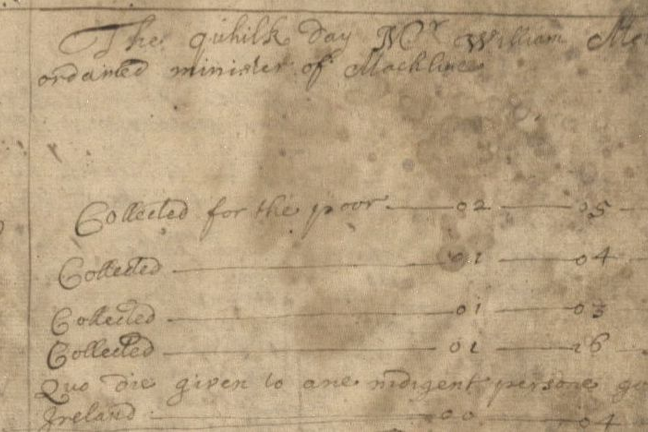 The quhilk day Mr William
ordained minister of Machline
Collected for the poor 02 05
Collected 01 04
Collected 01 03
Collected 01 16
Quo die given to ane indigent persone
Ireland 00 04